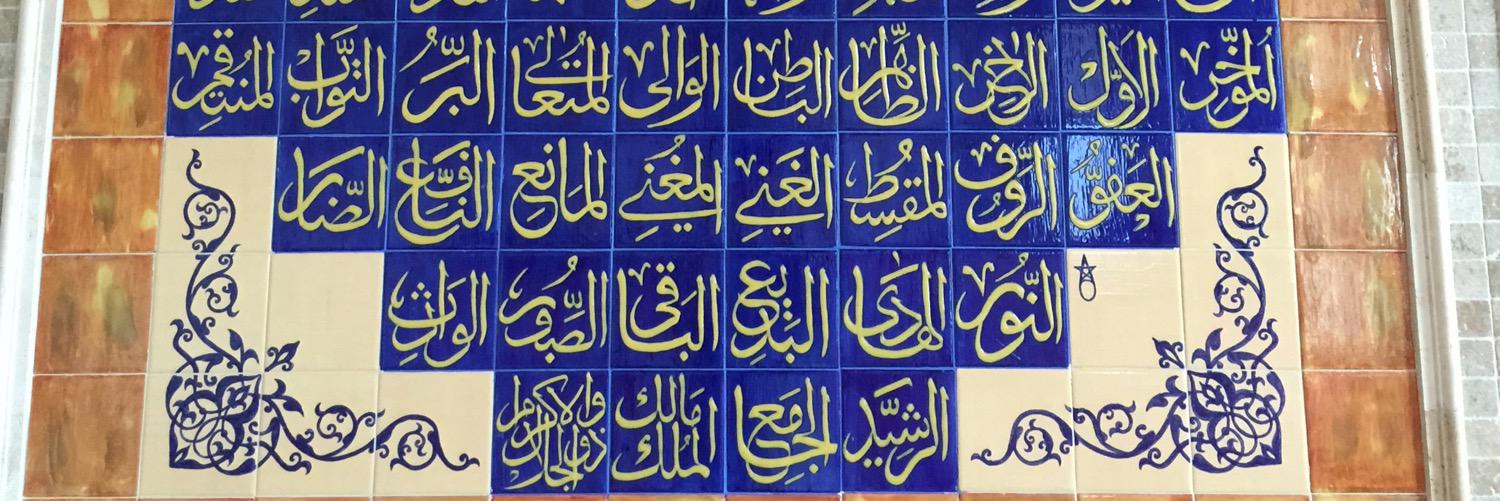 المؤخر الاول الاخر الظاهر الباطن الوالي المتعالى البر التواب المنتقم
العفو الرؤف المقسط الغني المغني المانع النافع الضار
النور الهادى البديع الباقى الصبور الوارث
الرشيد الجامع مالك الملك ذو الجلال والاكرام